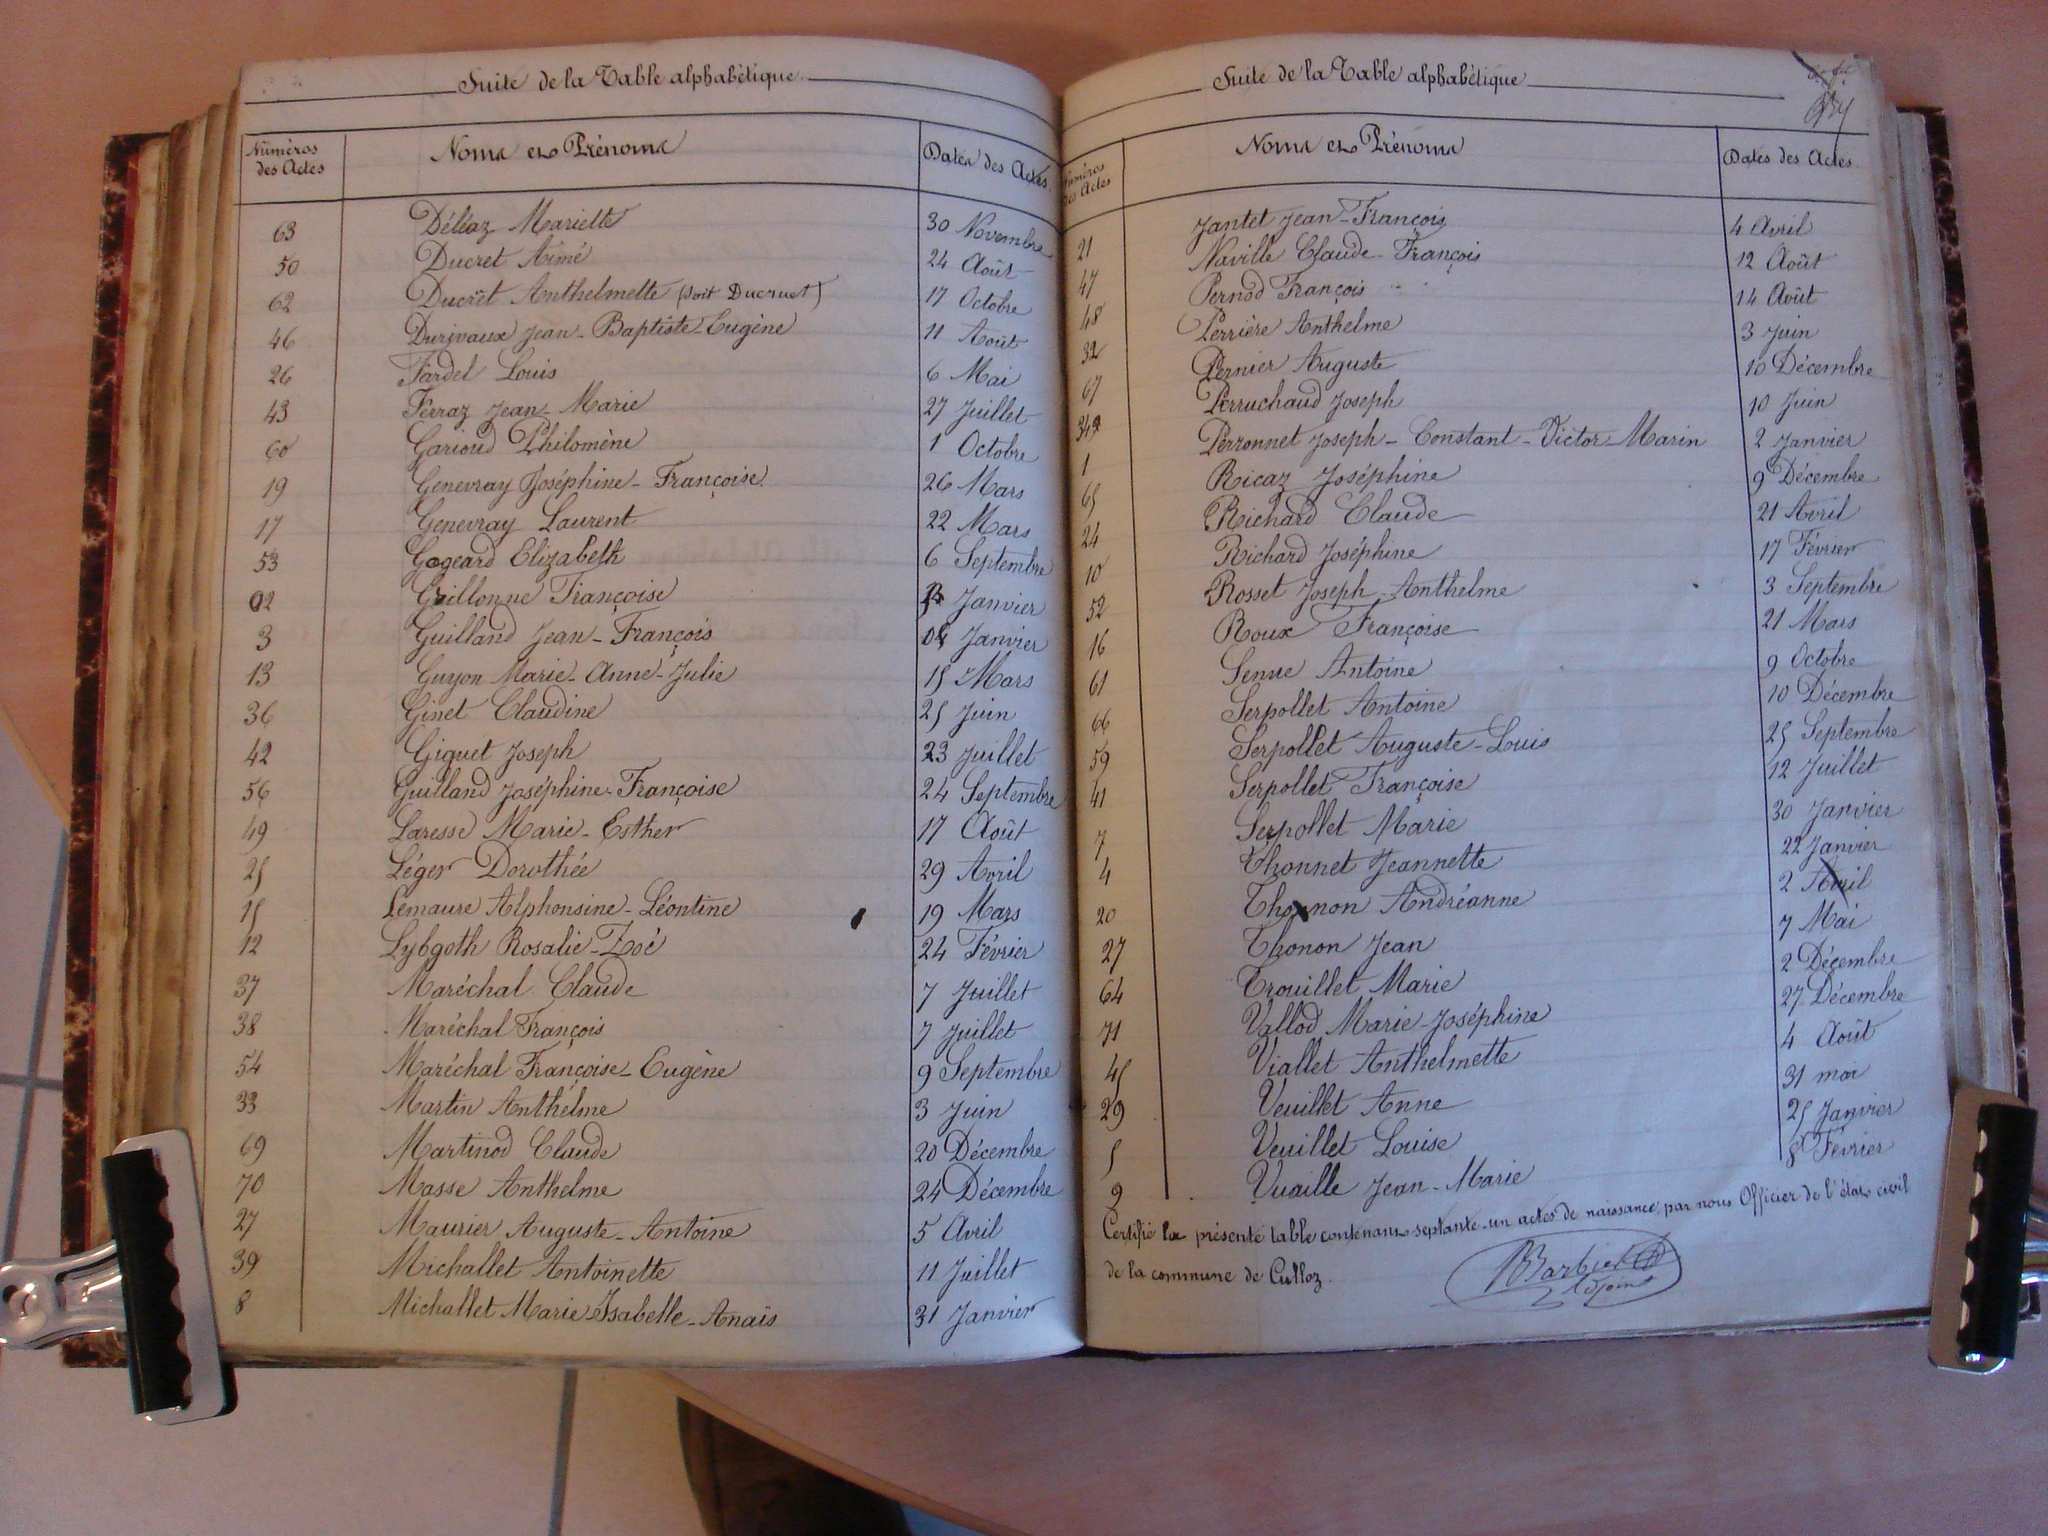 Suite de la Table alphabétique
Numéros des Actes Noms et Prénoms Dates des Actes
63 Déléaz Mariette 30 Novembre
50 Ducret Aimé 24 Août
62 Ducret Anthelmette (soit Ducruet) 17 Octobre
46 Durivaux Jean-Baptiste-Eugène 11 Août
26 Fardel Louis 6 Mai
43 Ferraz Jean-Marie 27 Juillet
60 Garioud Philomène 1 Octobre
19 Genevray Joséphine-Françoise 26 Mars
17 Genevray Laurent 22 Mars
53 Gogeard Elizabeth 6 Septembre
02 Grillonne Françoise Janvier
3 Guilland Jean-François Janvier
13 Guyon Marie-Anne-Julie 15 Mars
36 Ginet Claudine 25 Juin
42 Giguet Joseph 23 Juillet
56 Guilland Joséphine-Françoise 24 Septembre
49 Laresse Marie-Esther 17 Août
25 Léger Dorothée 29 Avril
15 Lemaure Alphonsine-Léontine 19 Mars
12 Lybgoth Rosalie-Zoé 24 Février
37 Maréchal Claude 7 Juillet
38 Maréchal François 7 Juillet
54 Maréchal Françoise-Eugène 9 Septembre
33 Martin Anthelme 3 Juin
69 Martinod Claude 20 Décembre
70 Masse Anthelme 24 Décembre
27 Maurier Auguste-Antoine 5 Avril
39 Michallet Antoinette 11 Juillet
8 Michallet Marie-Isabelle-Anaïs 31 Janvier
Suite de la Table alphabétique
Numéros des Actes Noms et Prénoms Dates des Actes
21 Jantet Jean-François 4 Avril
47 Naville Claude-François 12 Août
48 Pernod François 14 Août
32 Perrière Anthelme 3 Juin
67 Pernier Auguste 10 Décembre
34 Perruchaud Joseph 10 Juin
1 Perronnet Joseph-Constant-Victor-Marin 2 Janvier
65 Ricaz Joséphine 9 Décembre
24 Richard Claude 21 Avril
10 Richard Joséphine 17 Février
52 Rosset Joseph-Anthelme 3 Septembre
16 Roux Françoise 21 Mars
61 Senue Antoine 9 Octobre
66 Serpollet Antoine 10 Décembre
59 Serpollet Auguste-Louis 25 Septembre
41 Serpollet Françoise 12 Juillet
7 Serpollet Marie 30 Janvier
4 Thonnet Jeannette 22 Janvier
20 Thonon Andréanne 2 Avril
27 Thonon Jean 7 Mai
64 Trouillet Marie 2 Décembre
71 Vallod Marie-Joséphine 27 Décembre
45 Viallet Anthelmette 4 Août
29 Veuillet Anne 31 mai
5 Veuillet Louise 25 Janvier
9 Vuaille Jean-Marie 8 Février
Certifié la présente table contenant septante-un actes de naissance, par nous Officier de l'état civil
de la commune de Culloz.
Adjoint